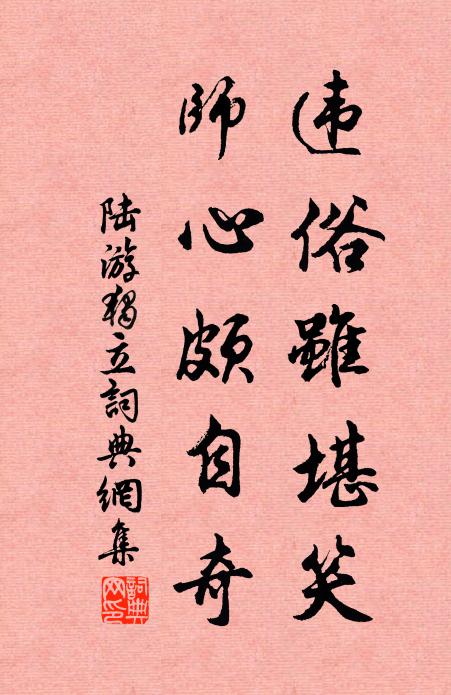 违俗雖堪笑
師心頗自奇
陆游獨立詞典網集
詞典網印